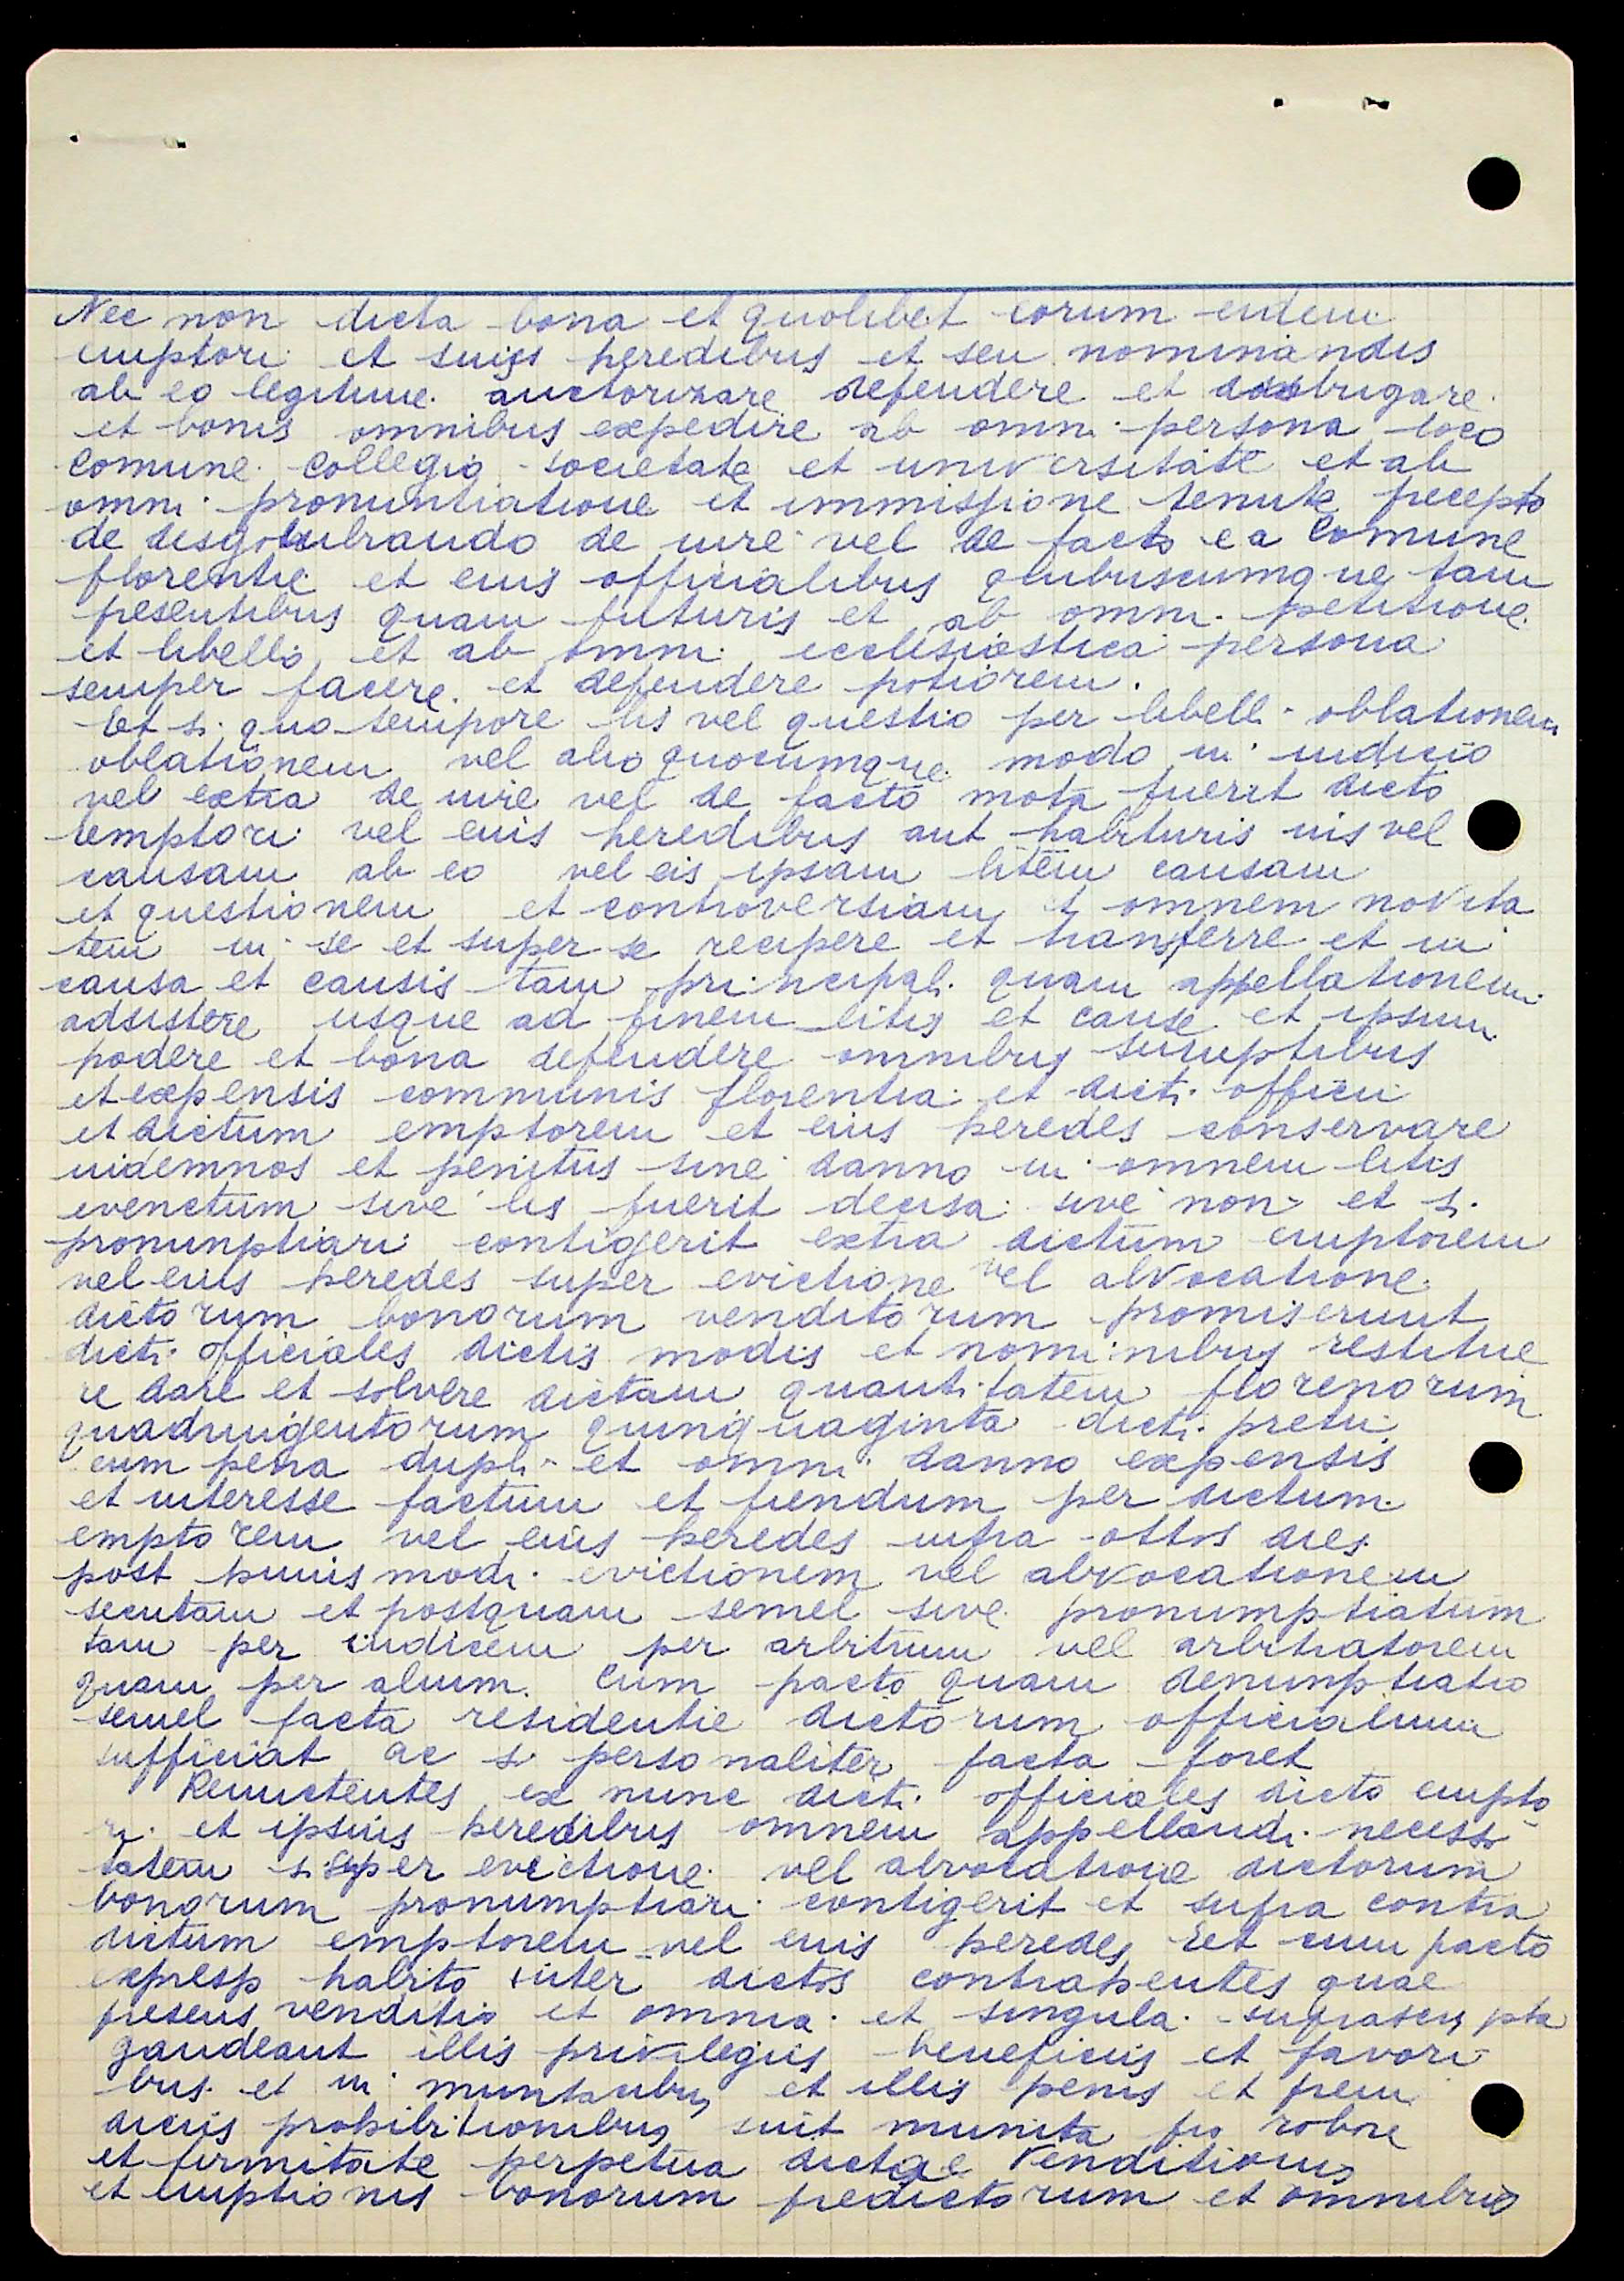 Nec non dicta bona et quolibet eorum eidem
emptori et suis heredibus et seu nominandis
ab eo legitime auctorizare defendere et disbrigare
et bonis omnibus expedire ab omni persona loco
comune collegio societate et universitate et ab
omni pronuntiatione et immissione tenute precepto
de disgombrando de iure vel de facto ea Comune
florentie et eius officialibus quibuscumque tam
presentibus quam futuris et ab omni petitione
et libello et ab omni ecclesiastica persona
semper facere et defendere potiorem.
Et si quo tempore lis vel questio per libelli oblationem
oblationem vel alio quocumque modo in iudicio
vel extra de iure vel de facto mota fuerit dicto
emptori vel eius heredibus aut habituris ius vel
causam ab eo vel eis ipsam litem causam
et questionem et controversiam et omnem novita
tem in se et super se recipere et transferre et in
causa et causis tam principali quam appellationem
adsistere usque ad finem litis et cause et ipsum
podere et bona defendere omnibus sumptibus
et expensis communis florentia et dicti officii
et dictum emptorem et eius heredes conservare
indemnos et penitus sine danno in omnem litis
evenctum sive lis fuerit decisa sive non et si
pronunptiari contigerit extra dictum emptorem
vel eius heredes super evictione vel alvocatione
dictorum bonorum venditorum promiserunt
dicti officiales dictis modis et nominibus restitue
re dare et solvere dictam quantitatem florenorum
quadringentorum quinquaginta dicti pretii
cum pena dupli et omni danno expensis
et interesse factum et fiendum per dictum
emptorem vel eius heredes infra ottos dies
post huius modi evictionem vel alvocationem
secutam et postquam semel sive pronumptiatum
tam per iudicem per arbitrum vel arbitratorem
quam per alium. Cum pacto quam denumptiatio
semel facta residentie dictorum officialium
sufficiat ac si personaliter facta foret
Remictentes ex nunc dicti officiales dicto empto
ri et ipsius heredibus omnem appellandi necessi
tatem si super evictione vel alvocatione dictorum
bonorum pronumptiari contigerit et supra contra
dictum emptorem vel eius heredes Et cum pacto
expresso habito inter dictos contrahentes quae
presens venditio et omnia et singula suprascripta
gaudeant illis privilegiis beneficiis et favori
bus et in et illis penis et preiu
diciis prohibitionibus sint munita pro robore
et firmitate perpetua dictae Venditionis
et emptionis bonorum predictorum et omnibus